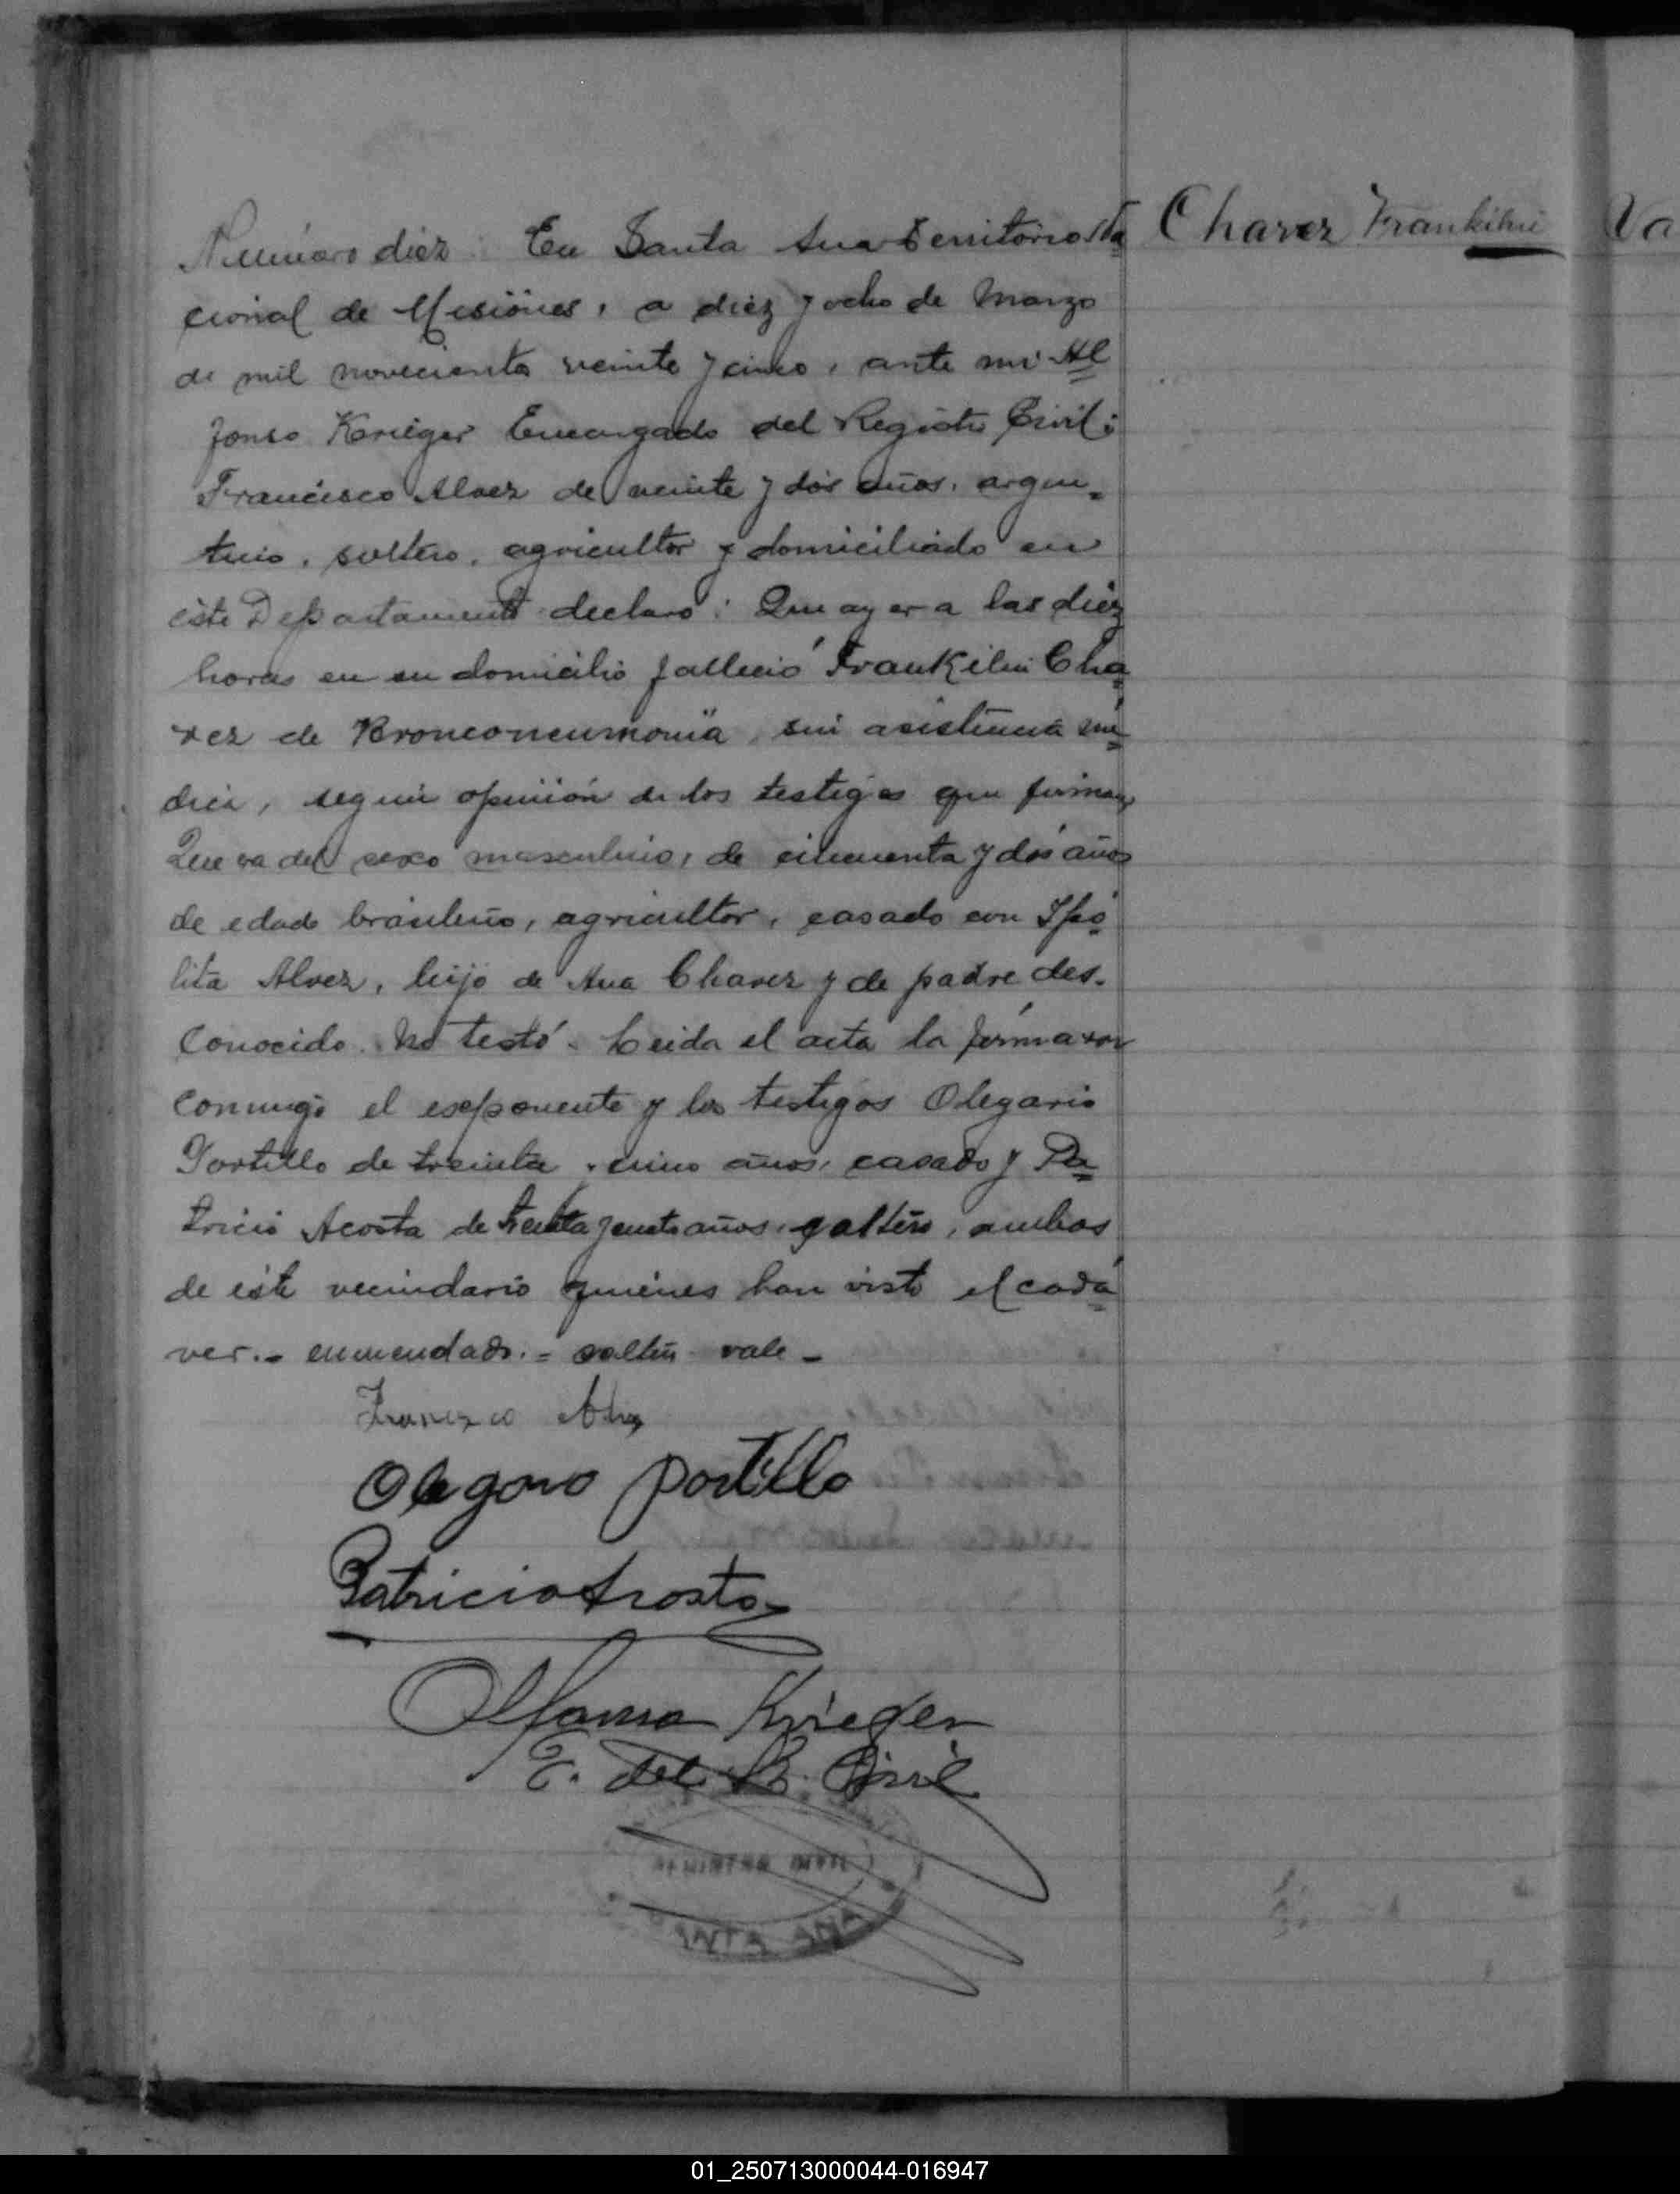 Chavez Frankilin
Va
Número diez. En Santa Ana Territorio Na
cional de Misiones, a diez y ocho de Marzo
de mil novecientos veinte y cinco, ante mi Al
fonso Krieger Encargado del Registro Civil:
Francisco Alvez de veinte y dos años, argen-
tino, soltero, agricultor y domiciliado en
este Departamento declaro: Que ayer a las diez
horas en su domicilio falleció Frankilin Cha
vez de Bronconeumonia, sin asistencia mé
dica, según opinión de los testigos que firman,
Que era del sexo masculino, de cincuenta y dos años
de edad brasileño, agricultor, casado con Ipó
lita Alvez, hijo de Ana Chavez y de padre des-
conocido. No testó. Leida el acta la firmaron
conmigo el exponente y los testigos Olegario
Portillo de treinta y cinco años, casado y Pa
tricio Acosta de treinta y cuatro años, soltero, ambos
de este vecindario quienes han visto el cadá
ver.- enmendado.= soltero vale -
Francisco Alvez
Olegario Portillo
Patricio Acosta
Alfonso Krieger
E. del R. Civil
REGISTRO CIVIL
SANTA ANA
01_250713000044-016947